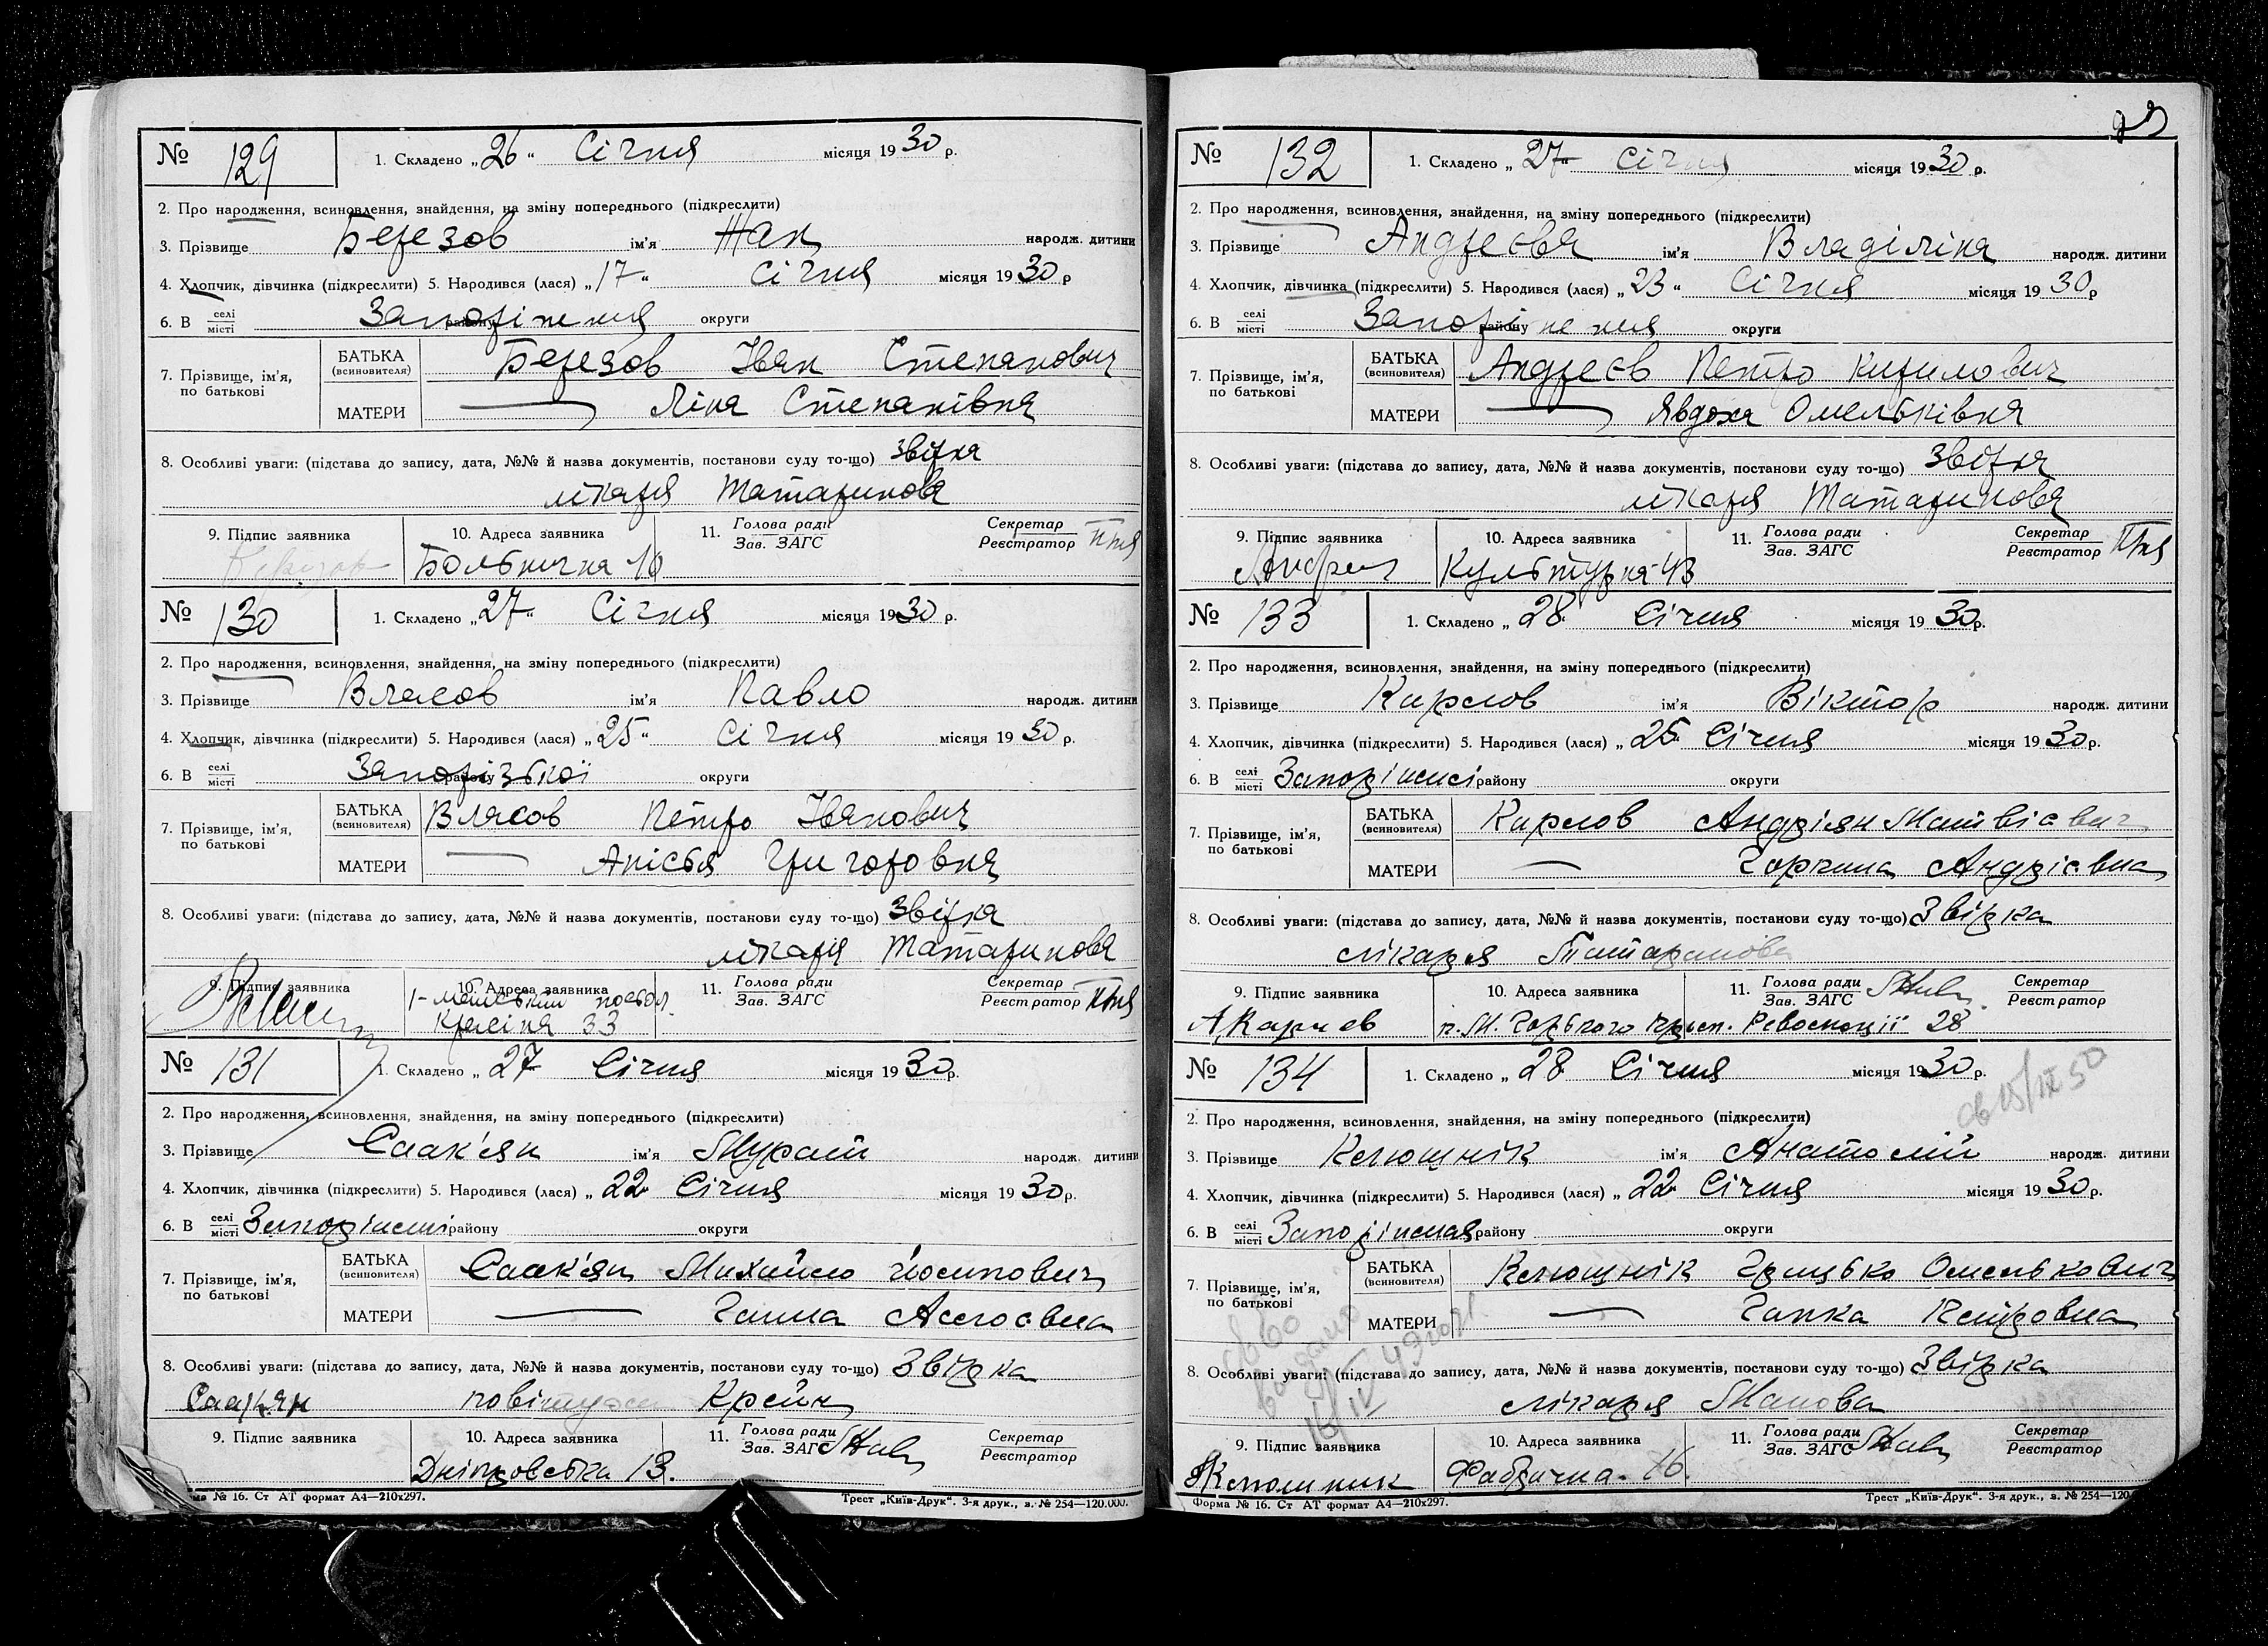 № 129 1. Складено „26“ Січня місяця 1930 р.
2. Про народження, всиновлення, знайдення, на зміну попереднього (підкреслити)
3. Прізвище Березов ім'я Жан народж. дитини
4. Хлопчик, дівчинка (підкреслити) 5. Народився (лася) „17“ Січня місяця 1930 р
6. В селі місті Запоріжжя району округи
7. Прізвище, ім'я, по батькові БАТЬКА (всиновителя) Березов Іван Степанович
МАТЕРИ — Ліна Степанівна
8. Особливі уваги: (підстава до запису, дата, №№ й назва документів, постанови суду то-що) Звірка
лікаря Татаринова
9. Підпис заявника 10. Адреса заявника 11. Голова ради Зав. ЗАГС Секретар Реєстратор
Больнична 10
№ 130 1. Складено „27“ Січня місяця 1930 р.
2. Про народження, всиновлення, знайдення, на зміну попереднього (підкреслити)
3. Прізвище Власов ім'я Павло народж. дитини
4. Хлопчик, дівчинка (підкреслити) 5. Народився (лася) „25“ Січня місяця 1930 р.
6. В селі місті району округи
7. Прізвище, ім'я, по батькові БАТЬКА (всиновителя) Власов Петро Іванович
МАТЕРИ — Анісья Григоровна
8. Особливі уваги: (підстава до запису, дата, №№ й назва документів, постанови суду то-що) Звірка
лікаря Татаринова
9. Підпис заявника 10. Адреса заявника 11. Голова ради Зав. ЗАГС Секретар Реєстратор
33
№ 131 1. Складено „27 Січня місяця 1930 р.
2. Про народження, всиновлення, знайдення, на зміну попереднього (підкреслити)
3. Прізвище Саак'ян ім'я Мурат народж. дитини
4. Хлопчик, дівчинка (підкреслити) 5. Народився (лася) „22 Січня місяця 1930 р.
6. В селі місті Запоріжжі району округи
7. Прізвище, ім'я, по батькові БАТЬКА (всиновителя) Саак'ян Михайло Йосипович
МАТЕРИ — Ганна
8. Особливі уваги: (підстава до запису, дата, №№ й назва документів, постанови суду то-що) Звірка
Саакян повітухи Крейн
9. Підпис заявника 10. Адреса заявника 11. Голова ради Зав. ЗАГС Секретар Реєстратор
Дніпровська 13.
№ 16. Ст АТ формат А4—210х297. Трест „Київ-Друк“. 3-я друк., з. № 254—120.000.
№ 132 1. Складено „27“ Січня місяця 1930 р.
2. Про народження, всиновлення, знайдення, на зміну попереднього (підкреслити)
3. Прізвище Андреєва ім'я Владіліна народж. дитини
4. Хлопчик, дівчинка (підкреслити) 5. Народився (лася) „23“ Січня місяця 1930 р
6. В селі місті Запоріжжя району округи
7. Прізвище, ім'я, по батькові БАТЬКА (всиновителя) Андреєв Петро Кирилович
МАТЕРИ — Явдоха Омельківна
8. Особливі уваги: (підстава до запису, дата, №№ й назва документів, постанови суду то-що) Звірка
лікаря Татаринова
9. Підпис заявника 10. Адреса заявника 11. Голова ради Зав. ЗАГС Секретар Реєстратор
Культурна 43
№ 133 1. Складено „28 Січня місяця 1930 р.
2. Про народження, всиновлення, знайдення, на зміну попереднього (підкреслити)
3. Прізвище Карлов ім'я Віктор народж. дитини
4. Хлопчик, дівчинка (підкреслити) 5. Народився (лася) „25 Січня місяця 1930 р.
6. В селі місті Запоріжжі району округи
7. Прізвище, ім'я, по батькові БАТЬКА (всиновителя) Карлов Андріян Матвієвич
МАТЕРИ — Горпина Андрієвна
8. Особливі уваги: (підстава до запису, дата, №№ й назва документів, постанови суду то-що) Звірка
лікаря Татаринова
9. Підпис заявника 10. Адреса заявника 11. Голова ради Зав. ЗАГС Секретар Реєстратор
п. М. Горького просп. Революції 28
№ 134 1. Складено „28 Січня місяця 1930 р.
2. Про народження, всиновлення, знайдення, на зміну попереднього (підкреслити)
3. Прізвище Клюшнік ім'я Анатолій народж. дитини
4. Хлопчик, дівчинка (підкреслити) 5. Народився (лася) „22 Січня місяця 1930 р.
6. В селі місті Запоріжжя району округи
7. Прізвище, ім'я, по батькові БАТЬКА (всиновителя) Клюшнік Грицько Омелькович
МАТЕРИ — Гапка Петровна
8. Особливі уваги: (підстава до запису, дата, №№ й назва документів, постанови суду то-що) Звірка
лікаря Манова
9. Підпис заявника 10. Адреса заявника 11. Голова ради Зав. ЗАГС Секретар Реєстратор
Клюшник Фабрична 76.
Форма № 16. Ст АТ формат А4—210х297. Трест „Київ-Друк“. 3-я друк., з. № 254—120